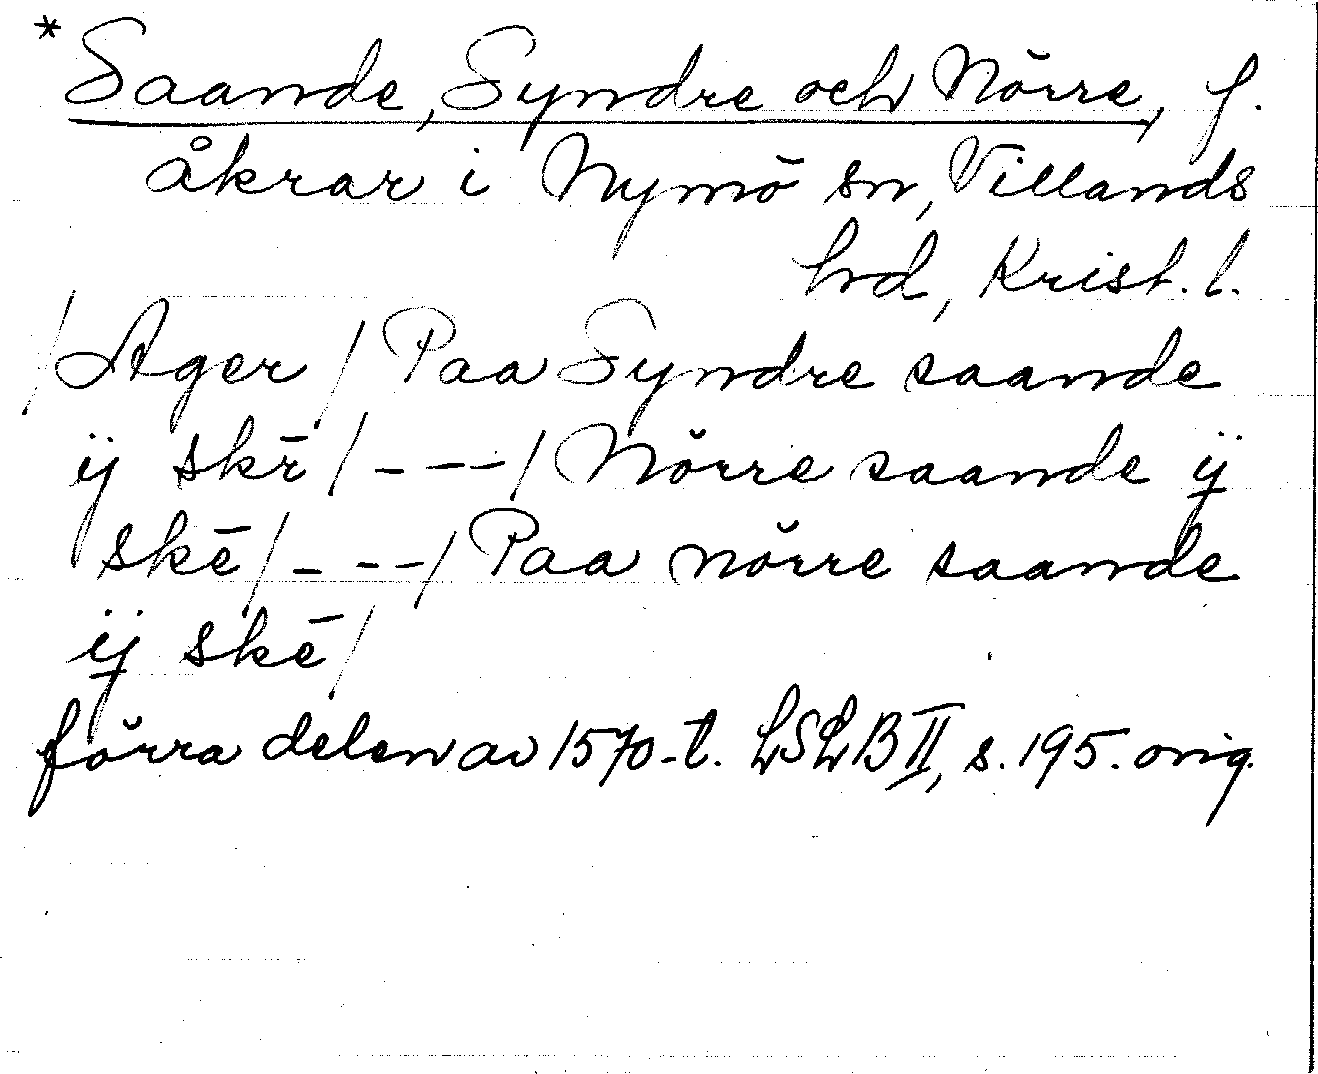 *Saande, Syndre och Nörre, f.
åkrar i Nymö sn, Villands
hrd, Krist. l.
/Ager/ Paa Syndre saande
ij skr̄ /---/ Nörre saande ij
skē /---/ Paa nörre saande
ij skē /
förra delen av 1570-t. LSLB II, s. 195. orig.